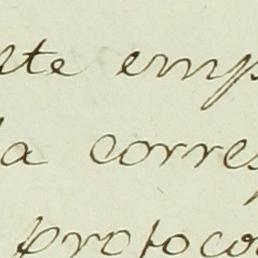 te emp
a corres
protoco